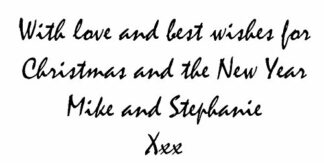 With love and best wishes for
Christmas and the New Year
Mike and Stephanie
Xxx